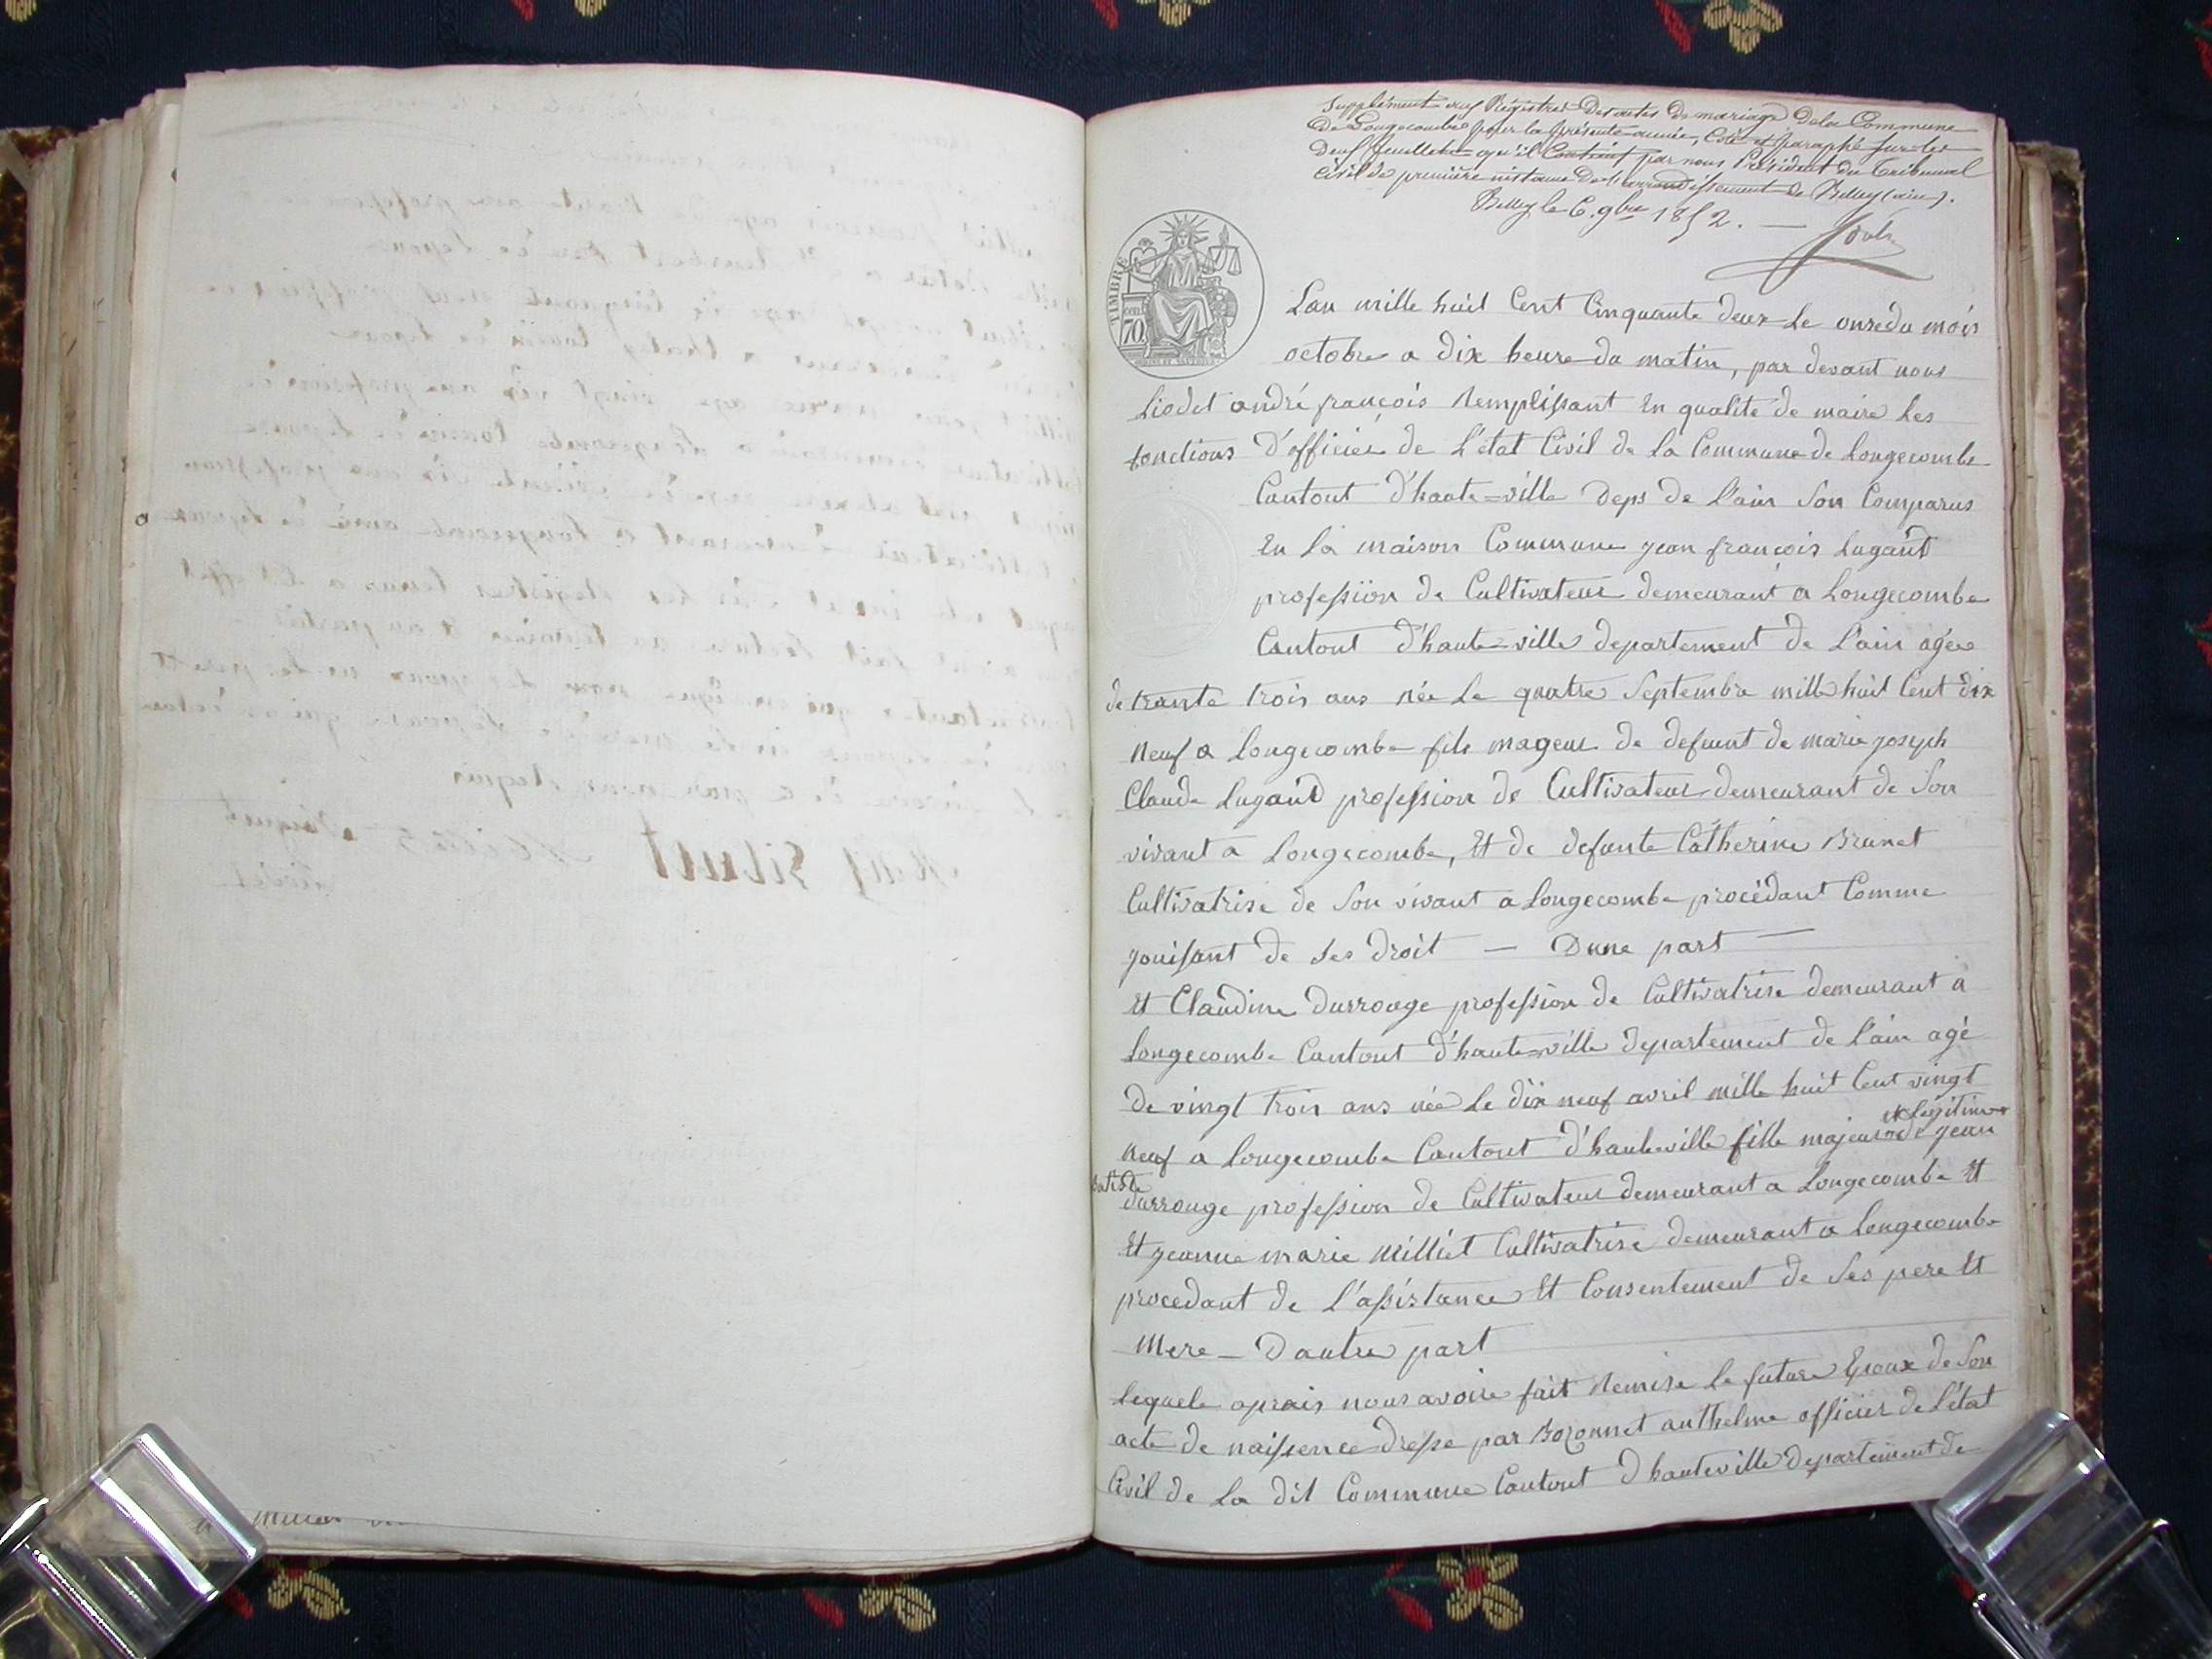 Supplément aux Régistres Des actes de mariage de la Commune
de Longecombe pour la présente année, Coté et Paraphé sur les
deux feuillets qu'il Contient par nous Président du Tribunal
Civil de première instance de l'arrondissement de Belley (ain).
Belley le 6. 9bre 1852. —
TIMBRE
70
Lan mille huit Cent Cinquante deux Le onze du mois
octobre a dix heure du matin, par devant nous
Liodet andré françois Remplissant En qualité de maire Les
fonctions D'officier de L'état Civil de La Commune de Longecombe
Cantont d'haute=ville Deps de L'ain Son Comparus
En La maison Commune jean françois Lugand
profession de Cultivateur demeurant a Longecombe
Cantont d'haute=ville departement de L'ain agée
de trante trois ans née Le quatre Septembre mille huit Cent dix
Neuf a Longecombe fils mageur de defeunt de marie joseph
Claude Lugand profession de Cultivateur demeurant de Son
vivant a Longecombe, Et de defunte Catherine Brunet
Cultivatrise de Son vivant a Longecombe procédant Comme
jouissant de Ses droit — Dune part —
Et Claudine Durrouge profession de Cultivatrise demeurant a
Longecombe Cantont d'haute=ville departement de L'ain agé
De vingt trois ans née Le dix neuf avril mille huit Cent vingt
et Légitime
Neuf a Longecombe Cantont d'hauteville fille majeure de jean
Batiste
Durrouge profession de Cultivateur demeurant a Longecombe Et
Et jeanne marie Milliet Cultivatrise demeurant a Longecombe
procedant de L'assistance Et Consentement de Ses pere Et
Mere — Dautre part
Lequele aprais nous avoire fait Remise Le future Epoux de Son
acte de naissence dresse par Bozonnet anthelme officier de L'état
Civil de La dit Commune Cantont D hauteville departement de